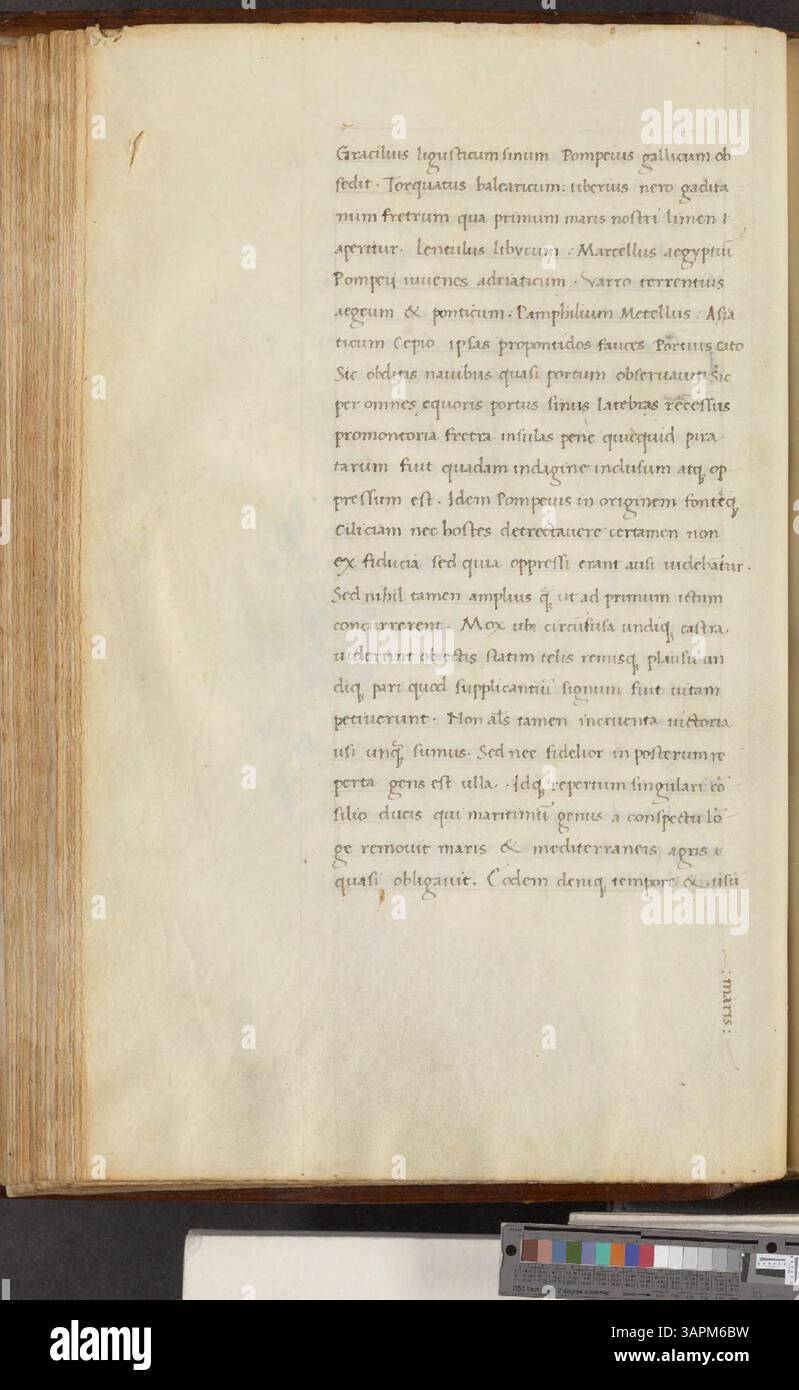 Graciluis ligusticum sinum Pompeius gallicum ob
sedit · Torquatus balearicum : tiberius nero gadita
num fretrum qua primum maris nostri limen
aperitur · lentulus libycum · : Marcellus aegyptiū
Pompeij iuuenes adriaticum · Varro terrentius
aegeum & ponticum · Pamphilium Metellus : Asia
ticum Cepio ipsas propontidos fauces Portius cato
Sic obditis nauibus quasi portum obseruauit Sic
per omnes equoris portus sinus latebras recessus
promontoria fretra insulas pene quicquid pira
tarum fuit quadam indagine inclusum atq; op
pressum est · Idem Pompeius in originem fonteq;
Ciliciam nec hostes detrectauere certamen non
ex fiducia sed quia oppressi erant ausi uidebatur ·
Sed nihil tamen amplius q̄ ut ad primum ictum
concurrerent · Mox ubi circūfusa undiq; castra
uiderunt obiectis statim telis remisq; plausu un
diq; pari quod supplicantiū signum fuit uitam
petiuerunt · Non al̄s tamen incruenta uictoria
usi unq̄ sumus · Sed nec fidelior in posterum re
perta gens est ulla · Idq; repertum singulari cō
silio ducis qui maritimū genus a conspectu lō
ge remouit maris & mediterraneis agris
quasi obligauit · Eodem deniq; tempore & usū
: maris :
alamy
Image ID: 3APM6BW
www.alamy.com